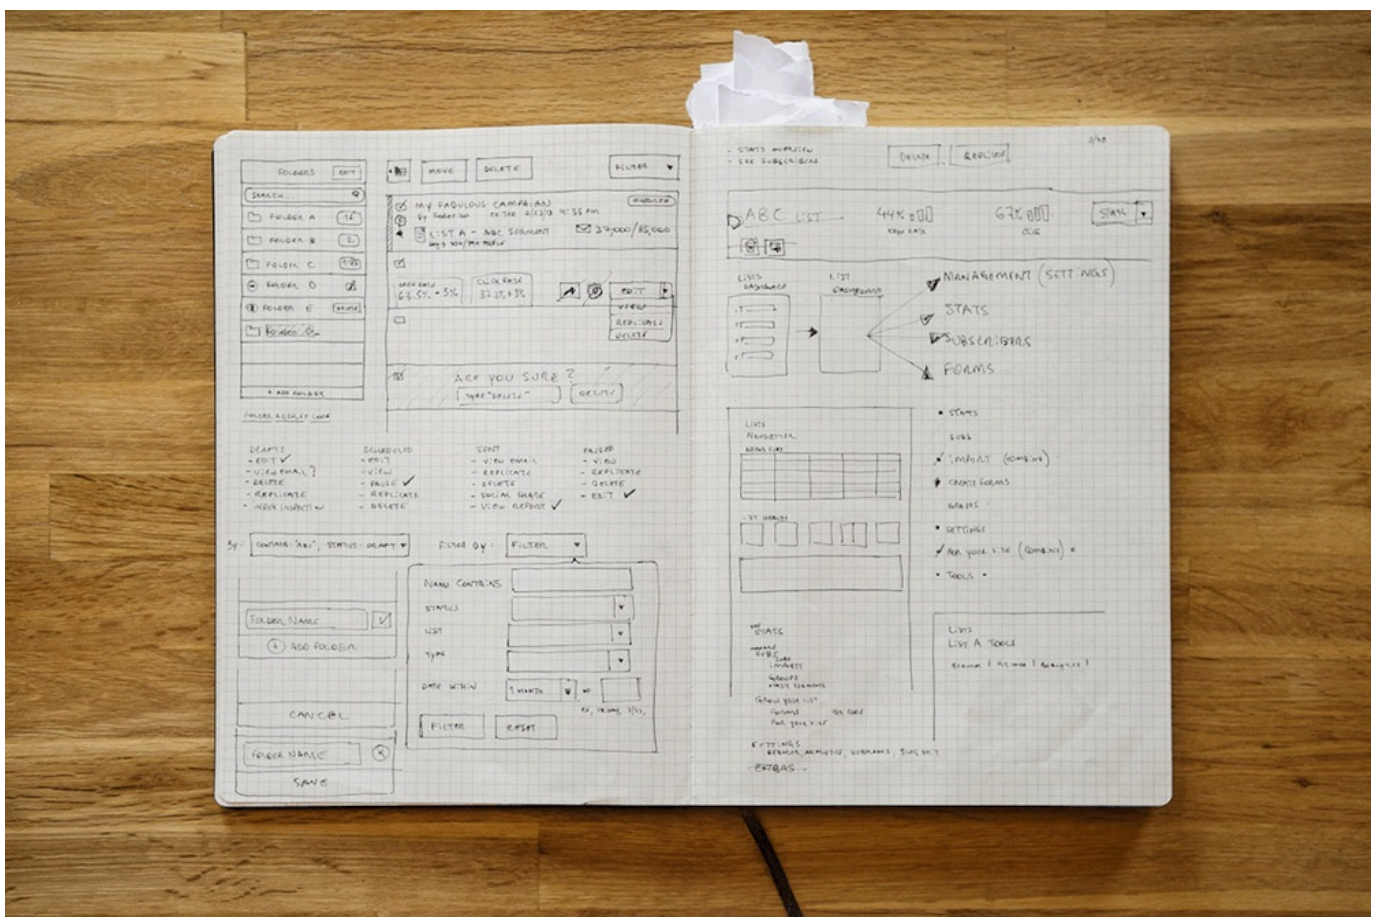 FOLDERS EDIT
SEARCH...
FOLDER A 16
FOLDER B 2
FOLDER C
FOLDER D
FOLDER E DELETE
+ ADD FOLDER
MOVE DELETE FILTER
MY FABULOUS CAMPAIGN
By 4:35 PM
LIST A - ABC SEGMENT 37,000/85,000
OPEN RATE CLICK RATE
63.5% EDIT
VIEW
REPLICATE
DELETE
ARE YOU SURE?
TYPE "DELETE" DELETE
DRAFTS
- EDIT
- VIEW EMAIL?
- DELETE
- REPLICATE
- INBOX INSPECTION
SCHEDULED
- EDIT
- VIEW
- PAUSE
- REPLICATE
- DELETE
SENT
- VIEW EMAIL
- REPLICATE
- DELETE
- SOCIAL SHARE
- VIEW REPORT
PAUSED
- VIEW
- REPLICATE
- DELETE
- EDIT
By: CONTAINS: "ABC", STATUS: DRAFT
FILTER BY: FILTER
NAME CONTAINS
STATUS
LIST
TYPE
DATE WITHIN 1 MONTH OF
FILTER RESET
FOLDER NAME
+ ADD FOLDER
CANCEL
FOLDER NAME
SAVE
- STATS OVERVIEW
- SEE SUBSCRIBERS
DELETE REPLICATE
ABC LIST 44% 67% STATS
OPEN RATE CLICK
LISTS
DASHBOARD
LIST
DASHBOARD
MANAGEMENT (SETTINGS)
STATS
SUBSCRIBERS
FORMS
LISTS
NEWSLETTER
LIST HEALTH
• STATS
SUBS
IMPORT (COMBINE)
CREATE FORMS
GROUPS
• SETTINGS
FOR YOUR SITE (COMBINE)
• TOOLS
STATS
SUBS
IMPORTS
GROUPS
GROW YOUR LIST
FORMS QR CODE
FOR YOUR SITE
SETTINGS
EXTRAS
LISTS
LIST A TOOLS